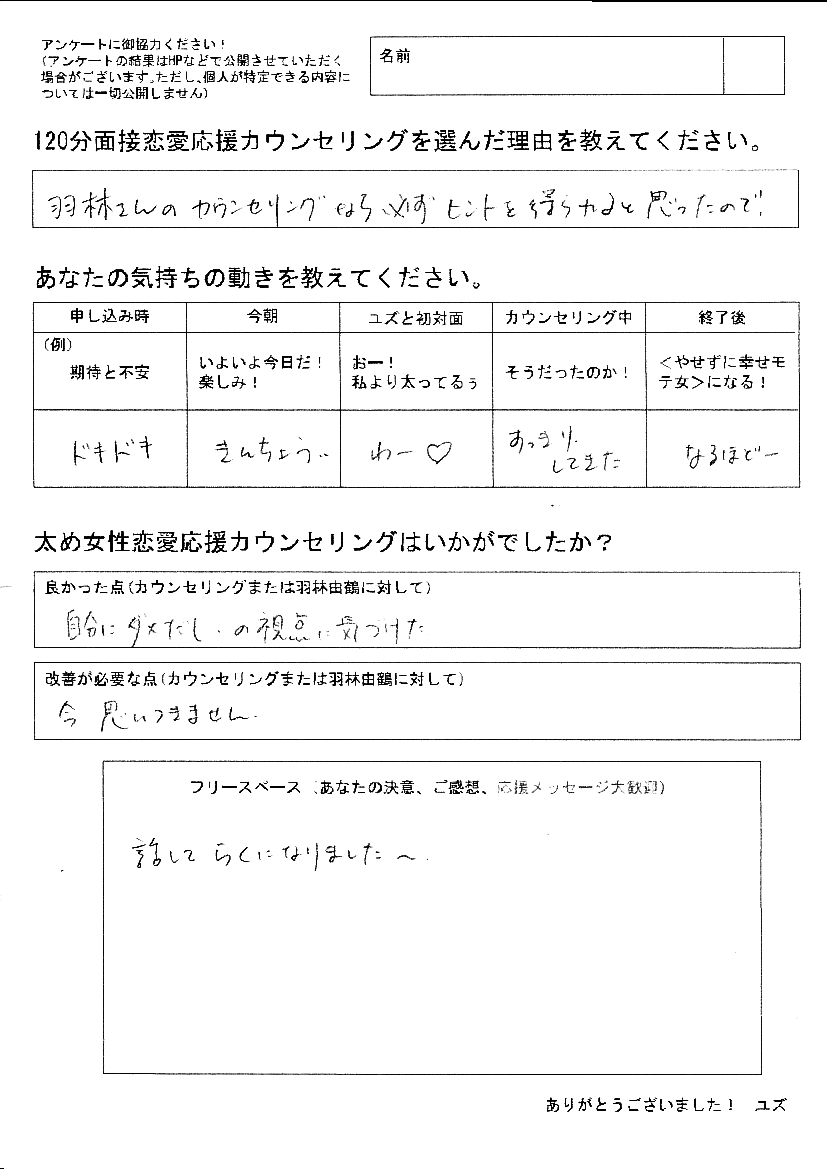 アンケートに御協力ください！
（アンケートの結果はHPなどで公開させていただく
場合がございます。ただし、個人が特定できる内容に
ついては一切公開しません）
名前
120分面接恋愛応援カウンセリングを選んだ理由を教えてください。
羽林さんのカウンセリングなら必ずヒントを得られると思ったので！
あなたの気持ちの動きを教えてください。
申し込み時 今朝 ユズと初対面 カウンセリング中 終了後
（例）
期待と不安
いよいよ今日だ！
楽しみ！
おー！
私より太ってるぅ
そうだったのか！
＜やせずに幸せモ
テ女＞になる！
ドキドキ
きんちょう..
わー♡
あっさり
してきた
なるほどー
太め女性恋愛応援カウンセリングはいかがでしたか？
良かった点（カウンセリングまたは羽林由鶴に対して）
自分にダメだし.の視点に気づけた
改善が必要な点（カウンセリングまたは羽林由鶴に対して）
今 思いつきません.
フリースペース（あなたの決意、ご感想、応援メッセージ大歓迎）
話して らくになりました〜.
ありがとうございました！ ユズ